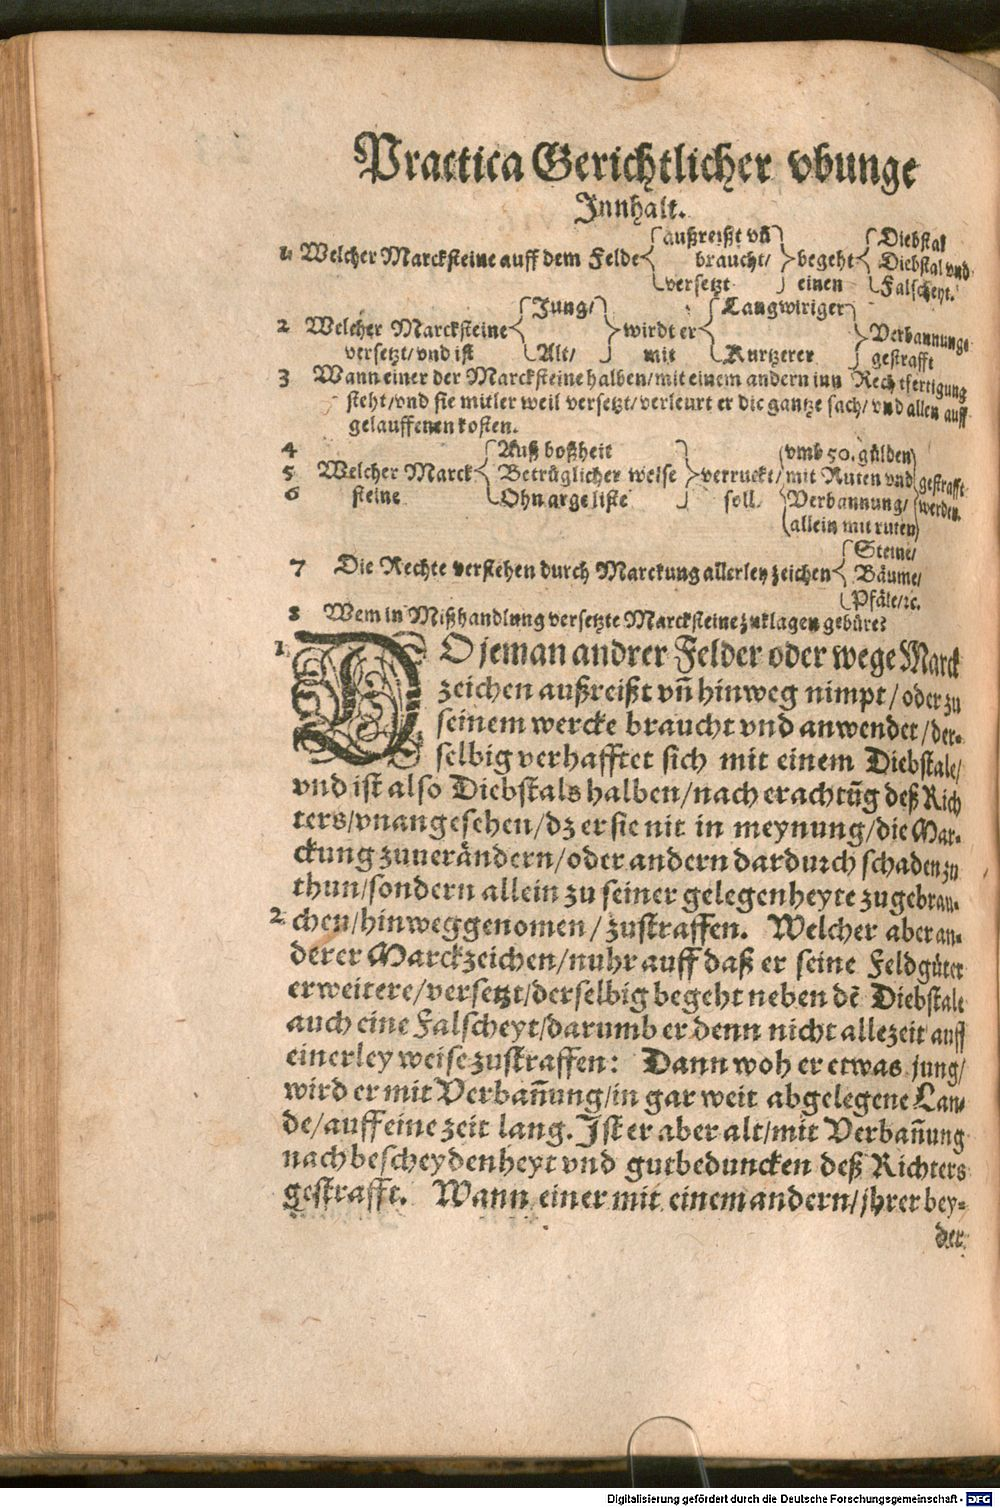 Practica Gerichtlicher vbunge
Jnnhalt.
1 Welcher Marcksteine auff dem Felde { außreißt vñ braucht/ versetzt } begeht einen { Diebstal Diebstal vnd Falscheyt.
2 Welcher Marcksteine versetzt/ vnd ist { Jung/ Alt/ } wirdt er mit { Langwiriger Kurtzerer } Verbannunge gestrafft
3 Wann einer der Marcksteine halben/ mit einem andern inn Rechtfertigung
steht/ vnd sie mitler weil versetzt/ verleurt er die gantze sach/ vnd allen auff
gelauffenen kosten.
4
5 Welcher Marck
6 steine { Auß boßheit Betrüglicher weise Ohn argeliste } verruckt/ soll { vmb 50. gülden mit Ruten vnd Verbannung/ allein mit ruten } gestrafft werden.
7 Die Rechte verstehen durch Marckung allerley zeichen { Steine/ Bäume/ Pfäle/ ꝛc.
8 Wem in Mißhandlung versetzte Marcksteine zuklagen gebüre?
1 WO jeman andrer Felder oder wege Marck
zeichen außreißt vñ hinweg nimpt/ oder zu
seinem wercke braucht vnd anwendet/ der-
selbig verhafftet sich mit einem Diebstale/
vnd ist also Diebstals halben/ nach erachtũg deß Rich
ters/ vnangesehen/ dz er sie nit in meynung/ die Mar-
ckung zuuerändern/ oder andern dardurch schaden zu
thun/ sondern allein zu seiner gelegenheyte zugebrau-
2 chen/ hinweggenomen/ zustraffen. Welcher aber an-
derer Marckzeichen/ nuhr auff daß er seine Feldgüter
erweitere/ versetzt/ derselbig begeht neben dẽ Diebstale
auch eine Falscheyt/ darumb er denn nicht allezeit auff
einerley weise zustraffen: Dann woh er etwas jung/
wird er mit Verbañung/ in gar weit abgelegene Lan-
de/ auff eine zeit lang. Jst er aber alt/ mit Verbañung
nach bescheydenheyt vnd gutbeduncken deß Richters
gestrafft. Wann einer mit einem andern/ jhrer bey-
der
Digitalisierung gefördert durch die Deutsche Forschungsgemeinschaft - DFG